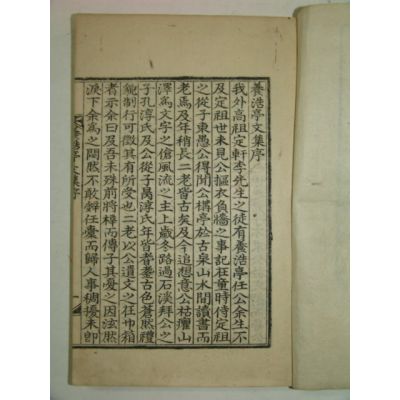 養浩亭文集序
我外高祖定軒李先生之徒有養浩亭任公余生不
及定祖世未見公摳衣負牆之事記在童時侍定祖
之從子東愚公得聞公構亭於古泉山水間讀書而
老焉及年稍長二老皆古矣及今追想意公枯癯山
澤爲文字之傖風流之主上歲冬路過石淡拜公之
子孔淳氏及公從子禹淳氏年皆耆耋古色蒼然禮
貌制行可徵其有所受也二老以公遺文之在巾箱
者示余曰及吾未殊前將梓而傳子其憂之因泫然
淚下余爲之閔然不敢辭任橐而歸人事稠擾未卽
浩亭文集序